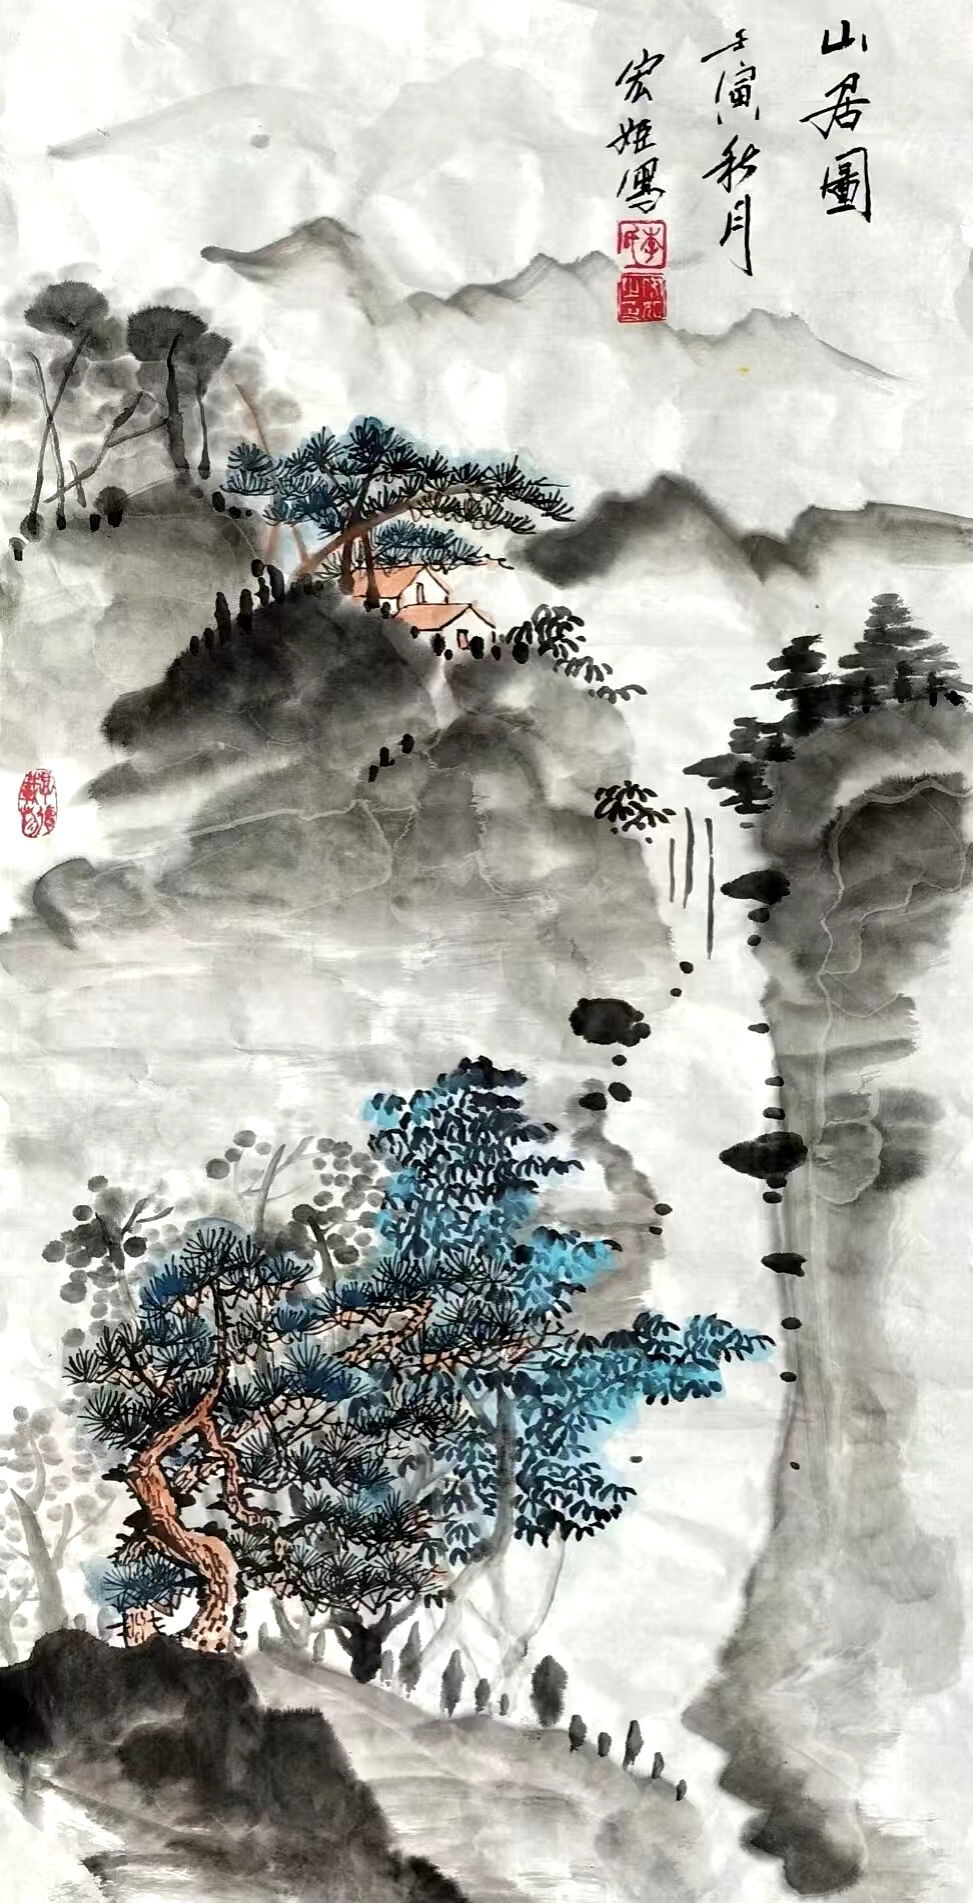 山居圖
壬寅秋月
宏姬寫
李氏